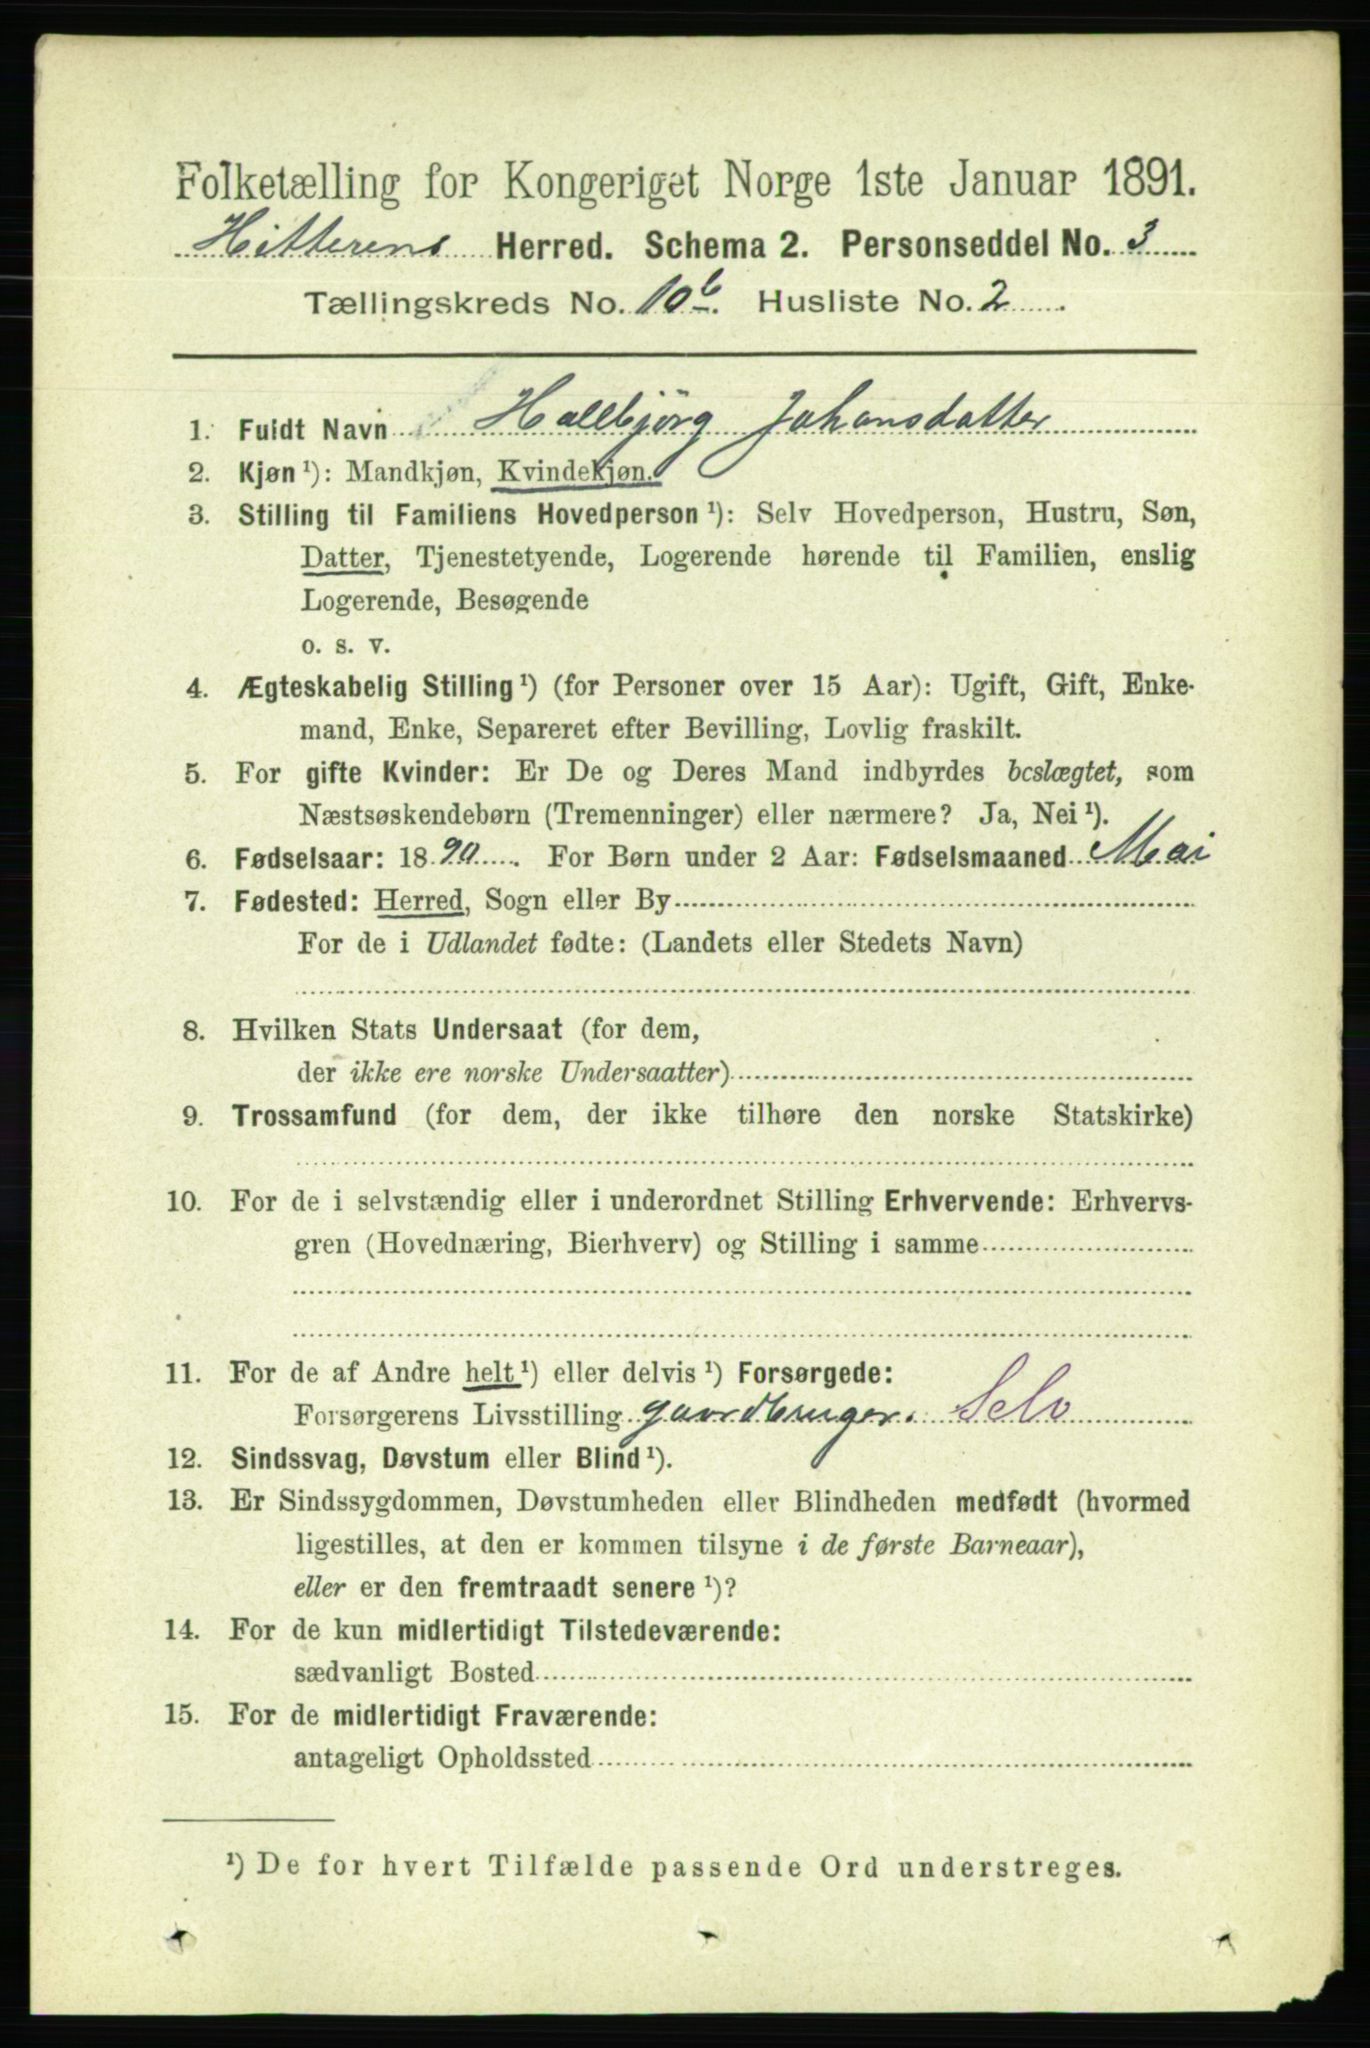 Folketælling for Kongeriget Norge 1ste Januar 1891.
Hitterens Herred. Schema 2. Personseddel No. 3
Tællingskreds No. 10b. Husliste No. 2
1. Fuldt Navn Hallbjörg Johansdatter
2. Kjøn ¹): Mandkjøn, Kvindekjøn.
3. Stilling til Familiens Hovedperson ¹): Selv Hovedperson, Hustru, Søn,
Datter, Tjenestetyende, Logerende hørende til Familien, enslig
Logerende, Besøgende
o. s. v.
4. Ægteskabelig Stilling ¹) (for Personer over 15 Aar): Ugift, Gift, Enke-
mand, Enke, Separeret efter Bevilling, Lovlig fraskilt.
5. For gifte Kvinder: Er De og Deres Mand indbyrdes beslægtet, som
Næstsøskendebørn (Tremenninger) eller nærmere? Ja, Nei ¹).
6. Fødselsaar: 1890. For Børn under 2 Aar: Fødselsmaaned Mai
7. Fødested: Herred, Sogn eller By
For de i Udlandet fødte: (Landets eller Stedets Navn)
8. Hvilken Stats Undersaat (for dem,
der ikke ere norske Undersaatter)
9. Trossamfund (for dem, der ikke tilhøre den norske Statskirke)
10. For de i selvstændig eller i underordnet Stilling Erhvervende: Erhvervs-
gren (Hovednæring, Bierhverv) og Stilling i samme
11. For de af Andre helt ¹) eller delvis ¹) Forsørgede:
Forsørgerens Livsstilling gaardbruger. Selv
12. Sindssvag, Døvstum eller Blind ¹).
13. Er Sindssygdommen, Døvstumheden eller Blindheden medfødt (hvormed
ligestilles, at den er kommen tilsyne i de første Barneaar),
eller er den fremtraadt senere ¹)?
14. For de kun midlertidigt Tilstedeværende:
sædvanligt Bosted
15. For de midlertidigt Fraværende:
antageligt Opholdssted
¹) De for hvert Tilfælde passende Ord understreges.